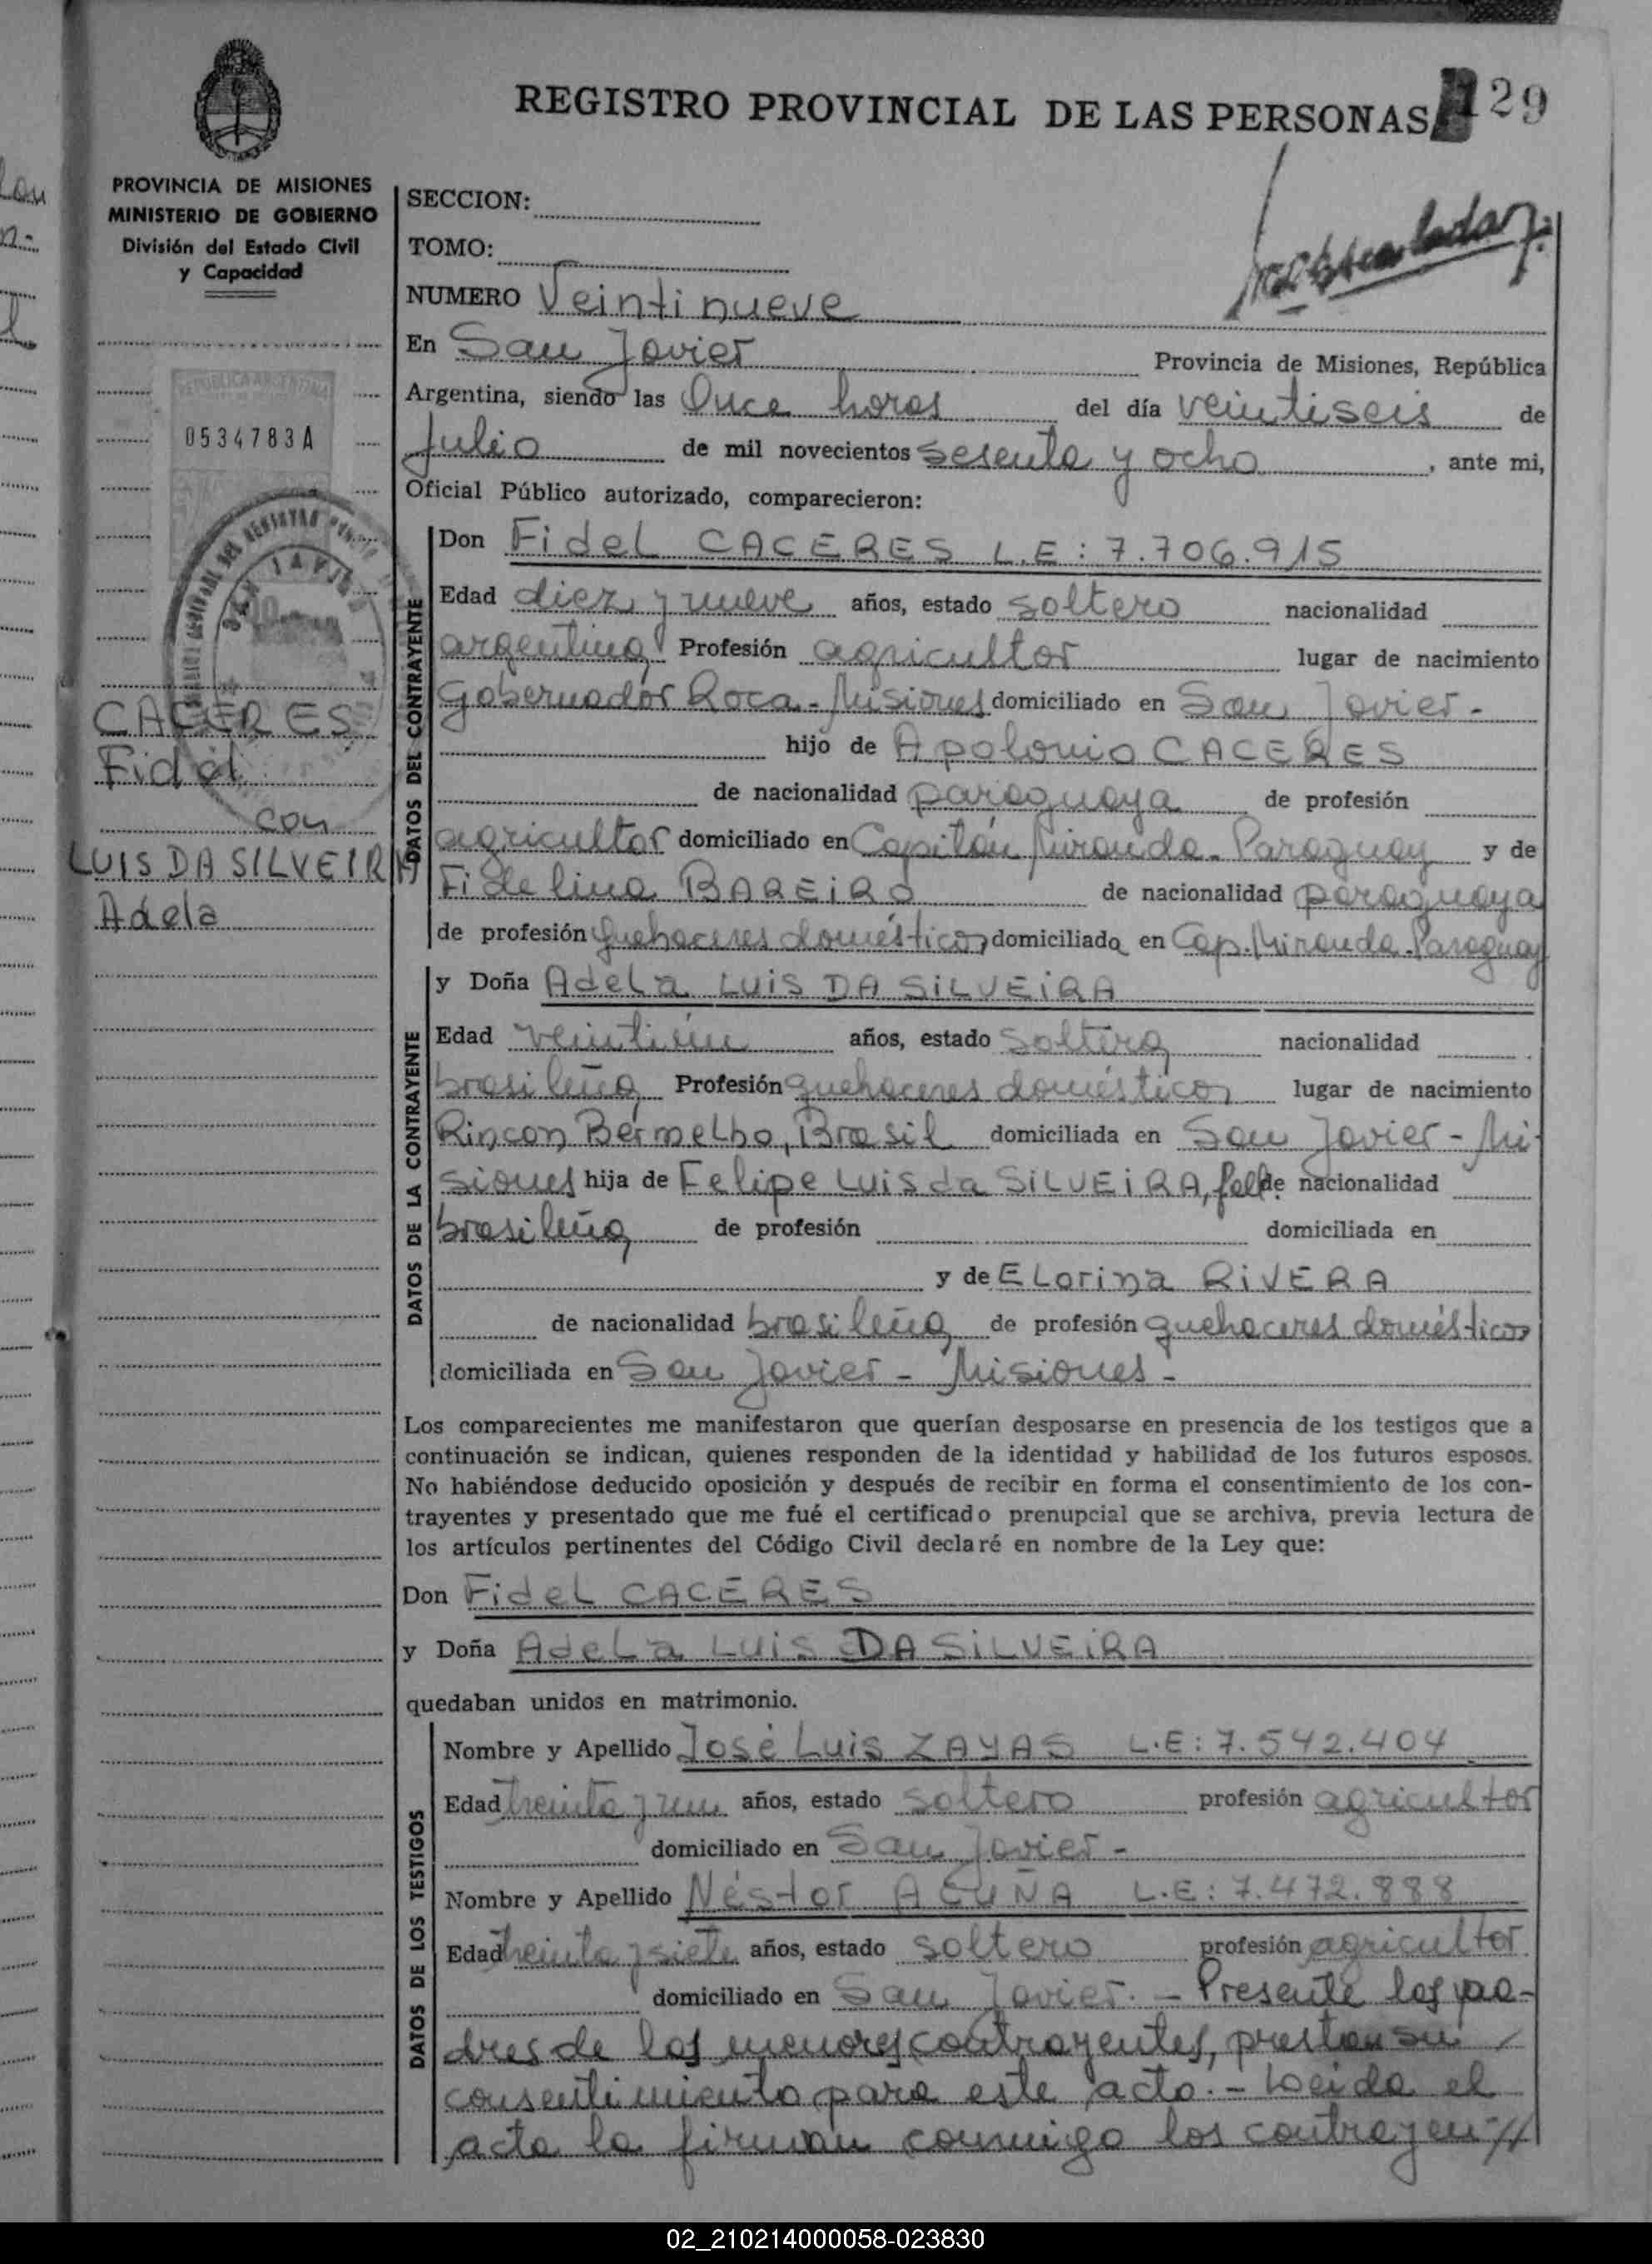 REGISTRO PROVINCIAL DE LAS PERSONAS 29
PROVINCIA DE MISIONES
MINISTERIO DE GOBIERNO
División del Estado Civil
y Capacidad
0534783A
CACERES
Fidel
con
LUIS DA SILVEIRA
Adela
SECCION:
TOMO:
NUMERO Veintinueve
En San Javier Provincia de Misiones, República
Argentina, siendo las Once horas del día veintiseis de
Julio de mil novecientos sesenta y ocho, ante mi,
Oficial Público autorizado, comparecieron:
DATOS DEL CONTRAYENTE
Don Fidel CACERES L.E: 7.706.915
Edad diez y nueve años, estado soltero nacionalidad
argentina Profesión agricultor lugar de nacimiento
Gobernador Roca - Misiones domiciliado en San Javier -
hijo de Apolonio CACERES
de nacionalidad paraguaya de profesión
agricultor domiciliado en Capitán Miranda - Paraguay y de
Fidelina BAREIRO de nacionalidad paraguaya
de profesión quehaceres domésticos domiciliada en Cap. Miranda - Paraguay
DATOS DE LA CONTRAYENTE
y Doña Adela LUIS DA SILVEIRA
Edad veintiún años, estado soltera nacionalidad
brasileña Profesión quehaceres domésticos lugar de nacimiento
Rincon Bermelho, Brasil domiciliada en San Javier - Mi-
siones hija de Felipe Luis da SILVEIRA, fall. de nacionalidad
brasileña de profesión domiciliada en
y de Elorina RIVERA
de nacionalidad brasileña de profesión quehaceres domésticos
domiciliada en San Javier - Misiones -
Los comparecientes me manifestaron que querían desposarse en presencia de los testigos que a
continuación se indican, quienes responden de la identidad y habilidad de los futuros esposos.
No habiéndose deducido oposición y después de recibir en forma el consentimiento de los con-
trayentes y presentado que me fué el certificado prenupcial que se archiva, previa lectura de
los artículos pertinentes del Código Civil declaré en nombre de la Ley que:
Don Fidel CACERES
y Doña Adela LUIS DA SILVEIRA
quedaban unidos en matrimonio.
DATOS DE LOS TESTIGOS
Nombre y Apellido José Luis ZAYAS L.E: 7.542.404
Edad treinta y un años, estado soltero profesión agricultor
domiciliado en San Javier -
Nombre y Apellido Néstor ACUÑA L.E: 7.472.888
Edad treinta y siete años, estado soltero profesión agricultor
domiciliado en San Javier. - Presente los pa-
dres de los menores contrayentes, prestan su
consentimiento para este acto. - Leida el
acta la firman conmigo los contrayen-//
02_210214000058-023830